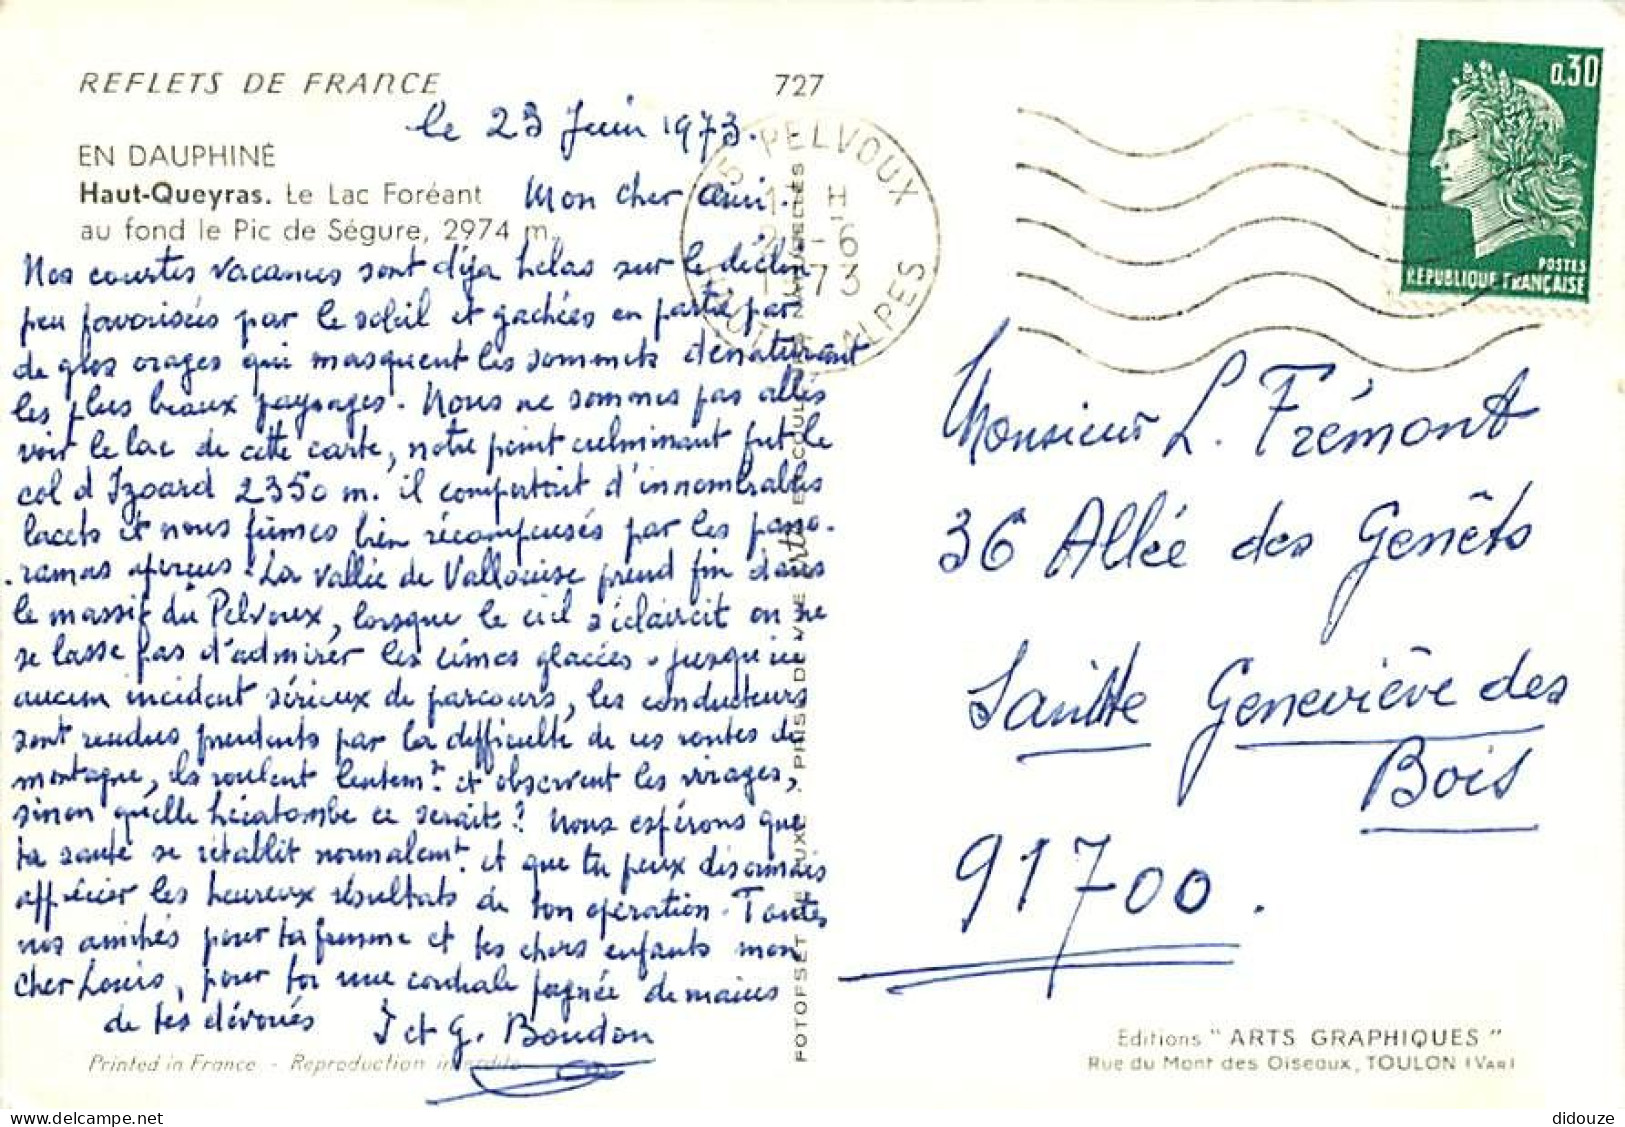 REFLETS DE FRANCE
727
le 23 Juin 1973.
EN DAUPHINÉ
Haut-Queyras. Le Lac Foréant
au fond le Pic de Ségure, 2974 m.
Mon cher ami.
Nos courtes vacances sont déja helas sur le déclin
peu favorisées par le soleil et gachées en partie par
de gros orages qui masquent les sommets dénaturant
les plus beaux paysages. Nous ne sommes pas allés
voir le lac de cette carte, notre point culminant fut le
col d'Izoard 2350 m. il comportait d'innombrables
lacets et nous fûmes bien récompensés par les pano-
.ramas aperçus. La vallée de Vallouise prend fin dans
le massif du Pelvoux, lorsque le ciel s'éclaircit on ne
se lasse pas d'admirer les cimes glacées. Jusqu'ici
aucun incident sérieux de parcours, les conducteurs
sont rendus prudents par la difficulté de ces routes de
montagne, ils roulent lentemt. et observent les virages,
sinon quelle hécatombe ce serait? Nous espérons que
ta santé se rétablit normalemt. et que tu peux désormais
apprécier les heureux résultats de ton opération. Toutes
nos amitiés pour ta femme et tes chers enfants mon
cher Louis, pour toi une cordiale poignée de mains
de tes dévoués
J et G. Boudon
Printed in France - Reproduction interdite
PELVOUX
H
-6
1973
HAUTES ALPES
0,30
POSTES
RÉPUBLIQUE FRANÇAISE
Monsieur L. Frémont
36 Allée des Genêts
Sainte Geneviève des
Bois
91700.
Editions "ARTS GRAPHIQUES"
Rue du Mont des Oiseaux, TOULON (VAR)
didouze